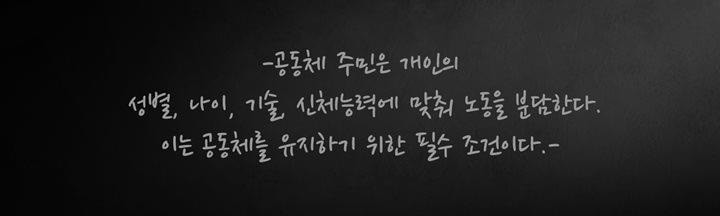 -공동체 주민은 개인의
성별, 나이, 기술, 신체능력에 맞춰 노동을 분담한다.
이는 공동체를 유지하기 위한 필수 조건이다.-